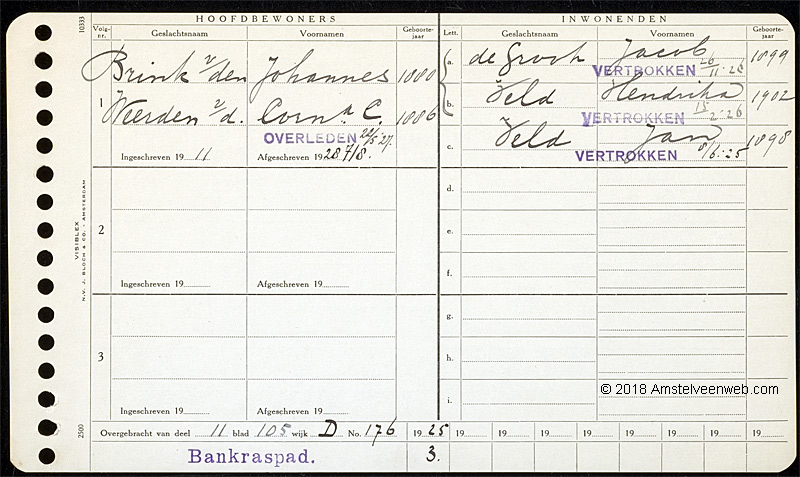 HOOFDBEWONERS
Volg-nr. Geslachtsnaam Voornamen Geboorte-jaar
Brink v/den Johannes
1 Weerden v/d. Corn.a C.
OVERLEDEN 22/5 '27.
Ingeschreven 19 11 Afgeschreven 19 28 7/8.
2
Ingeschreven 19 Afgeschreven 19
3
Ingeschreven 19 Afgeschreven 19
INWONENDEN
Lett. Geslachtsnaam Voornamen Geboorte-jaar
a. de Groot Jacob 1899
VERTROKKEN 26/11-26
b. Veld Hendrika 1902
VERTROKKEN 15/2-26
c. Veld Jan 1898
VERTROKKEN 8/6-25
d.
e.
f.
g.
h.
i.
Overgebracht van deel 11 blad 105 wijk D No. 176 19 25 19 19 19 19 19 19 19 19
Bankraspad. 3.
10333
VISIBLEX
N.V. J. BLOCH & CO. - AMSTERDAM
2500
© 2018 Amstelveenweb.com